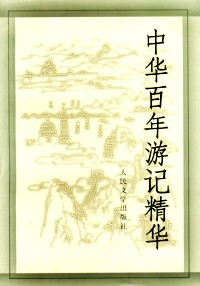 中华百年游记精华
人民文学出版社